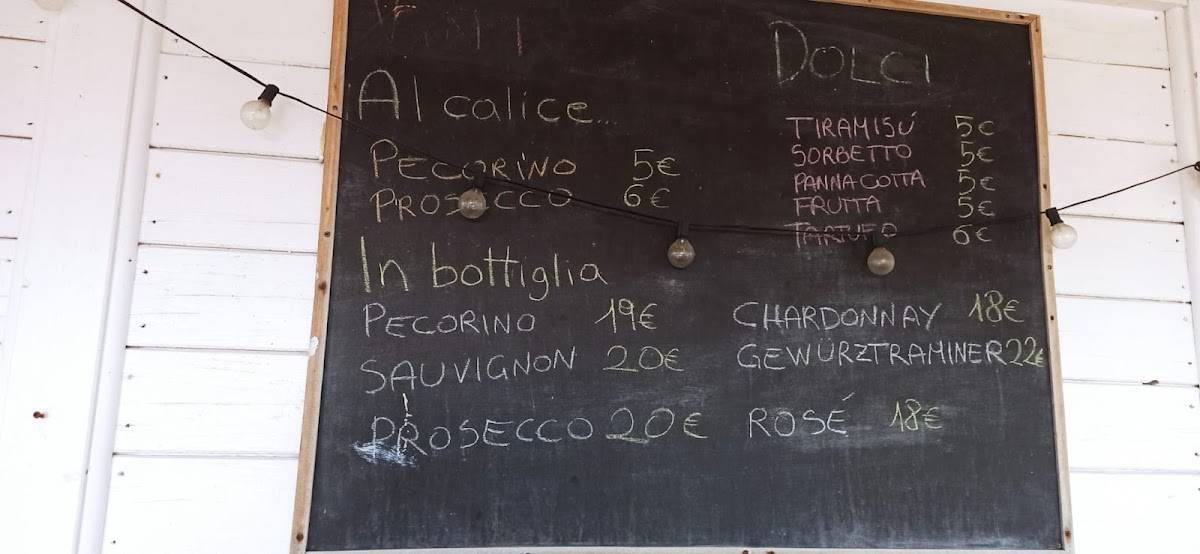 Al calice...
PECORINO 5€
PROSECCO 6€
DOLCI
TIRAMISÚ 5€
SORBETTO 5€
PANNA COTTA 5€
FRUTTA 5€
TARTUFO 6€
In bottiglia
PECORINO 19€
SAUVIGNON 20€
PROSECCO 20€
CHARDONNAY 18€
GEWÜRZTRAMINER 22€
ROSÉ 18€